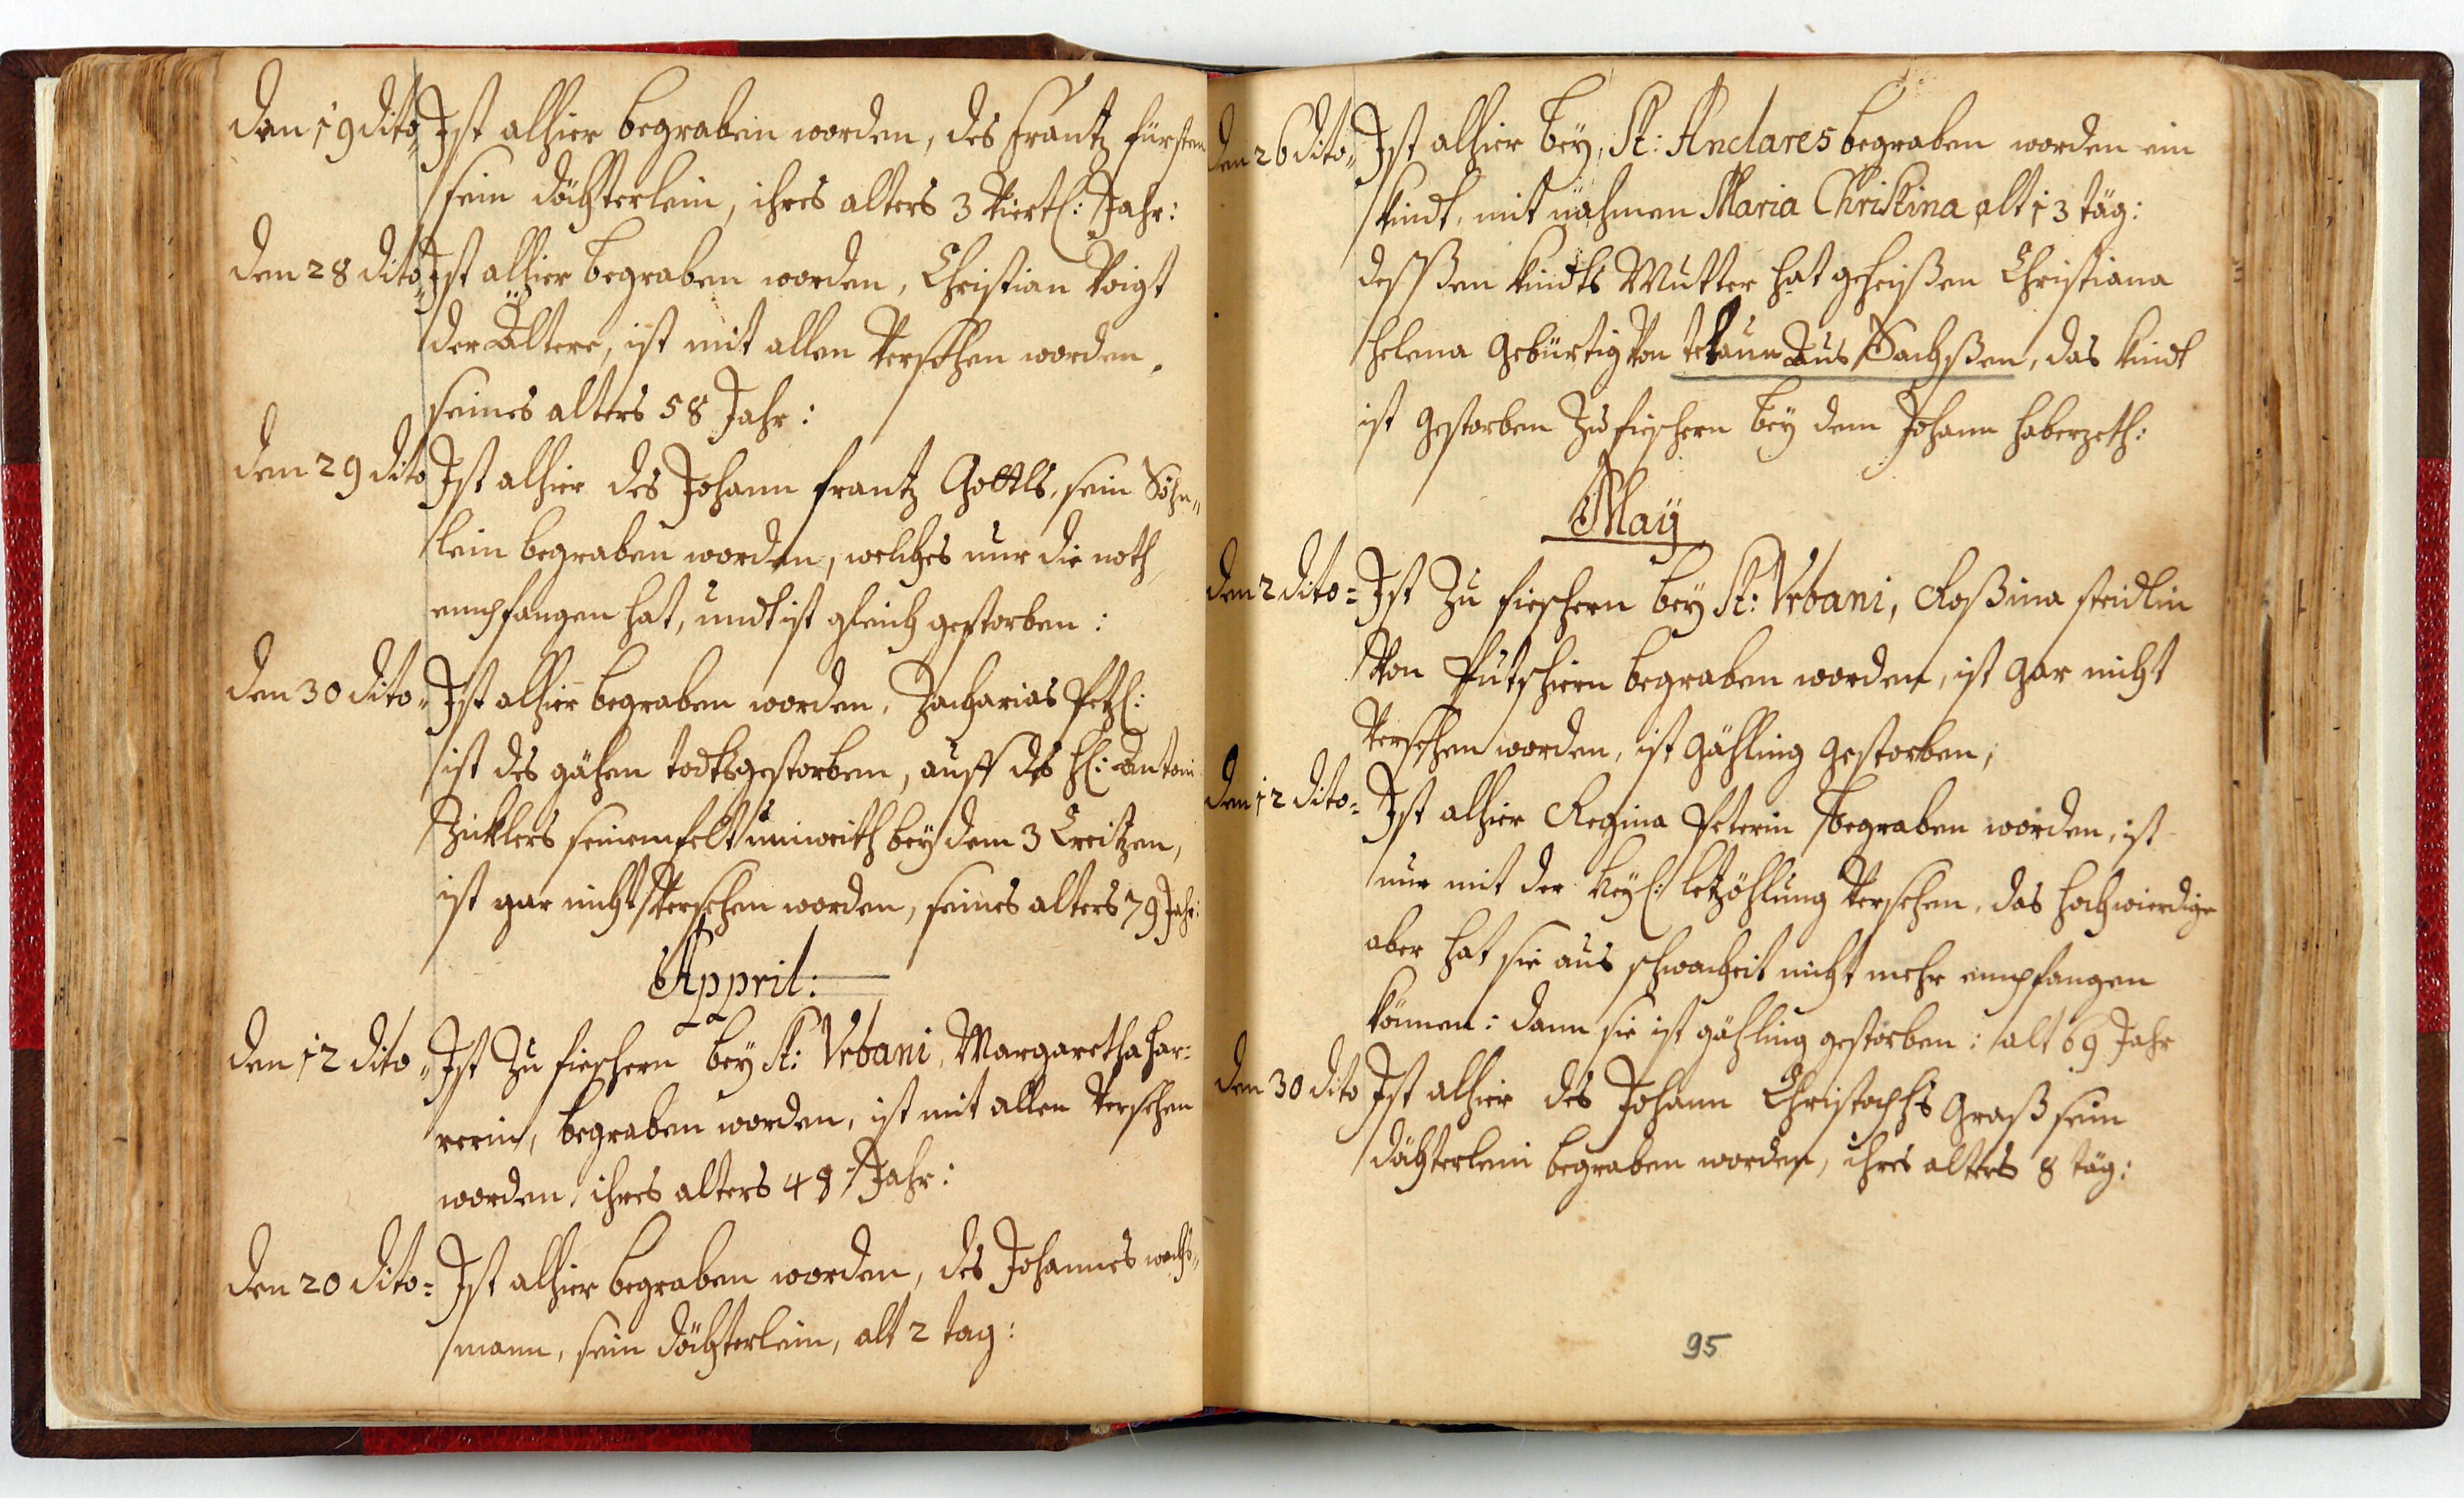 Den 19 dito„ Ist alhier begraben worden, des Frantz fürsten
sein döchterlein, ihres alters 3 Viertl: Jahr:
Den 28 dito„ Ist alhier begraben worden, Christian Voigt
der Ältere, ist mit allen Versehen worden,
seines alters 58 Jahr:
Den 29 dito Ist alhier des Johann frantz Gottls, sein Söhn„
lein begraben worden, welches nur die noth
empfangen hat, undt ist gleich gestorben:
Den 30 dito„ Ist alhier begraben worden, Zacharias Petzl:
ist des gähen todts gestorben, auff des H: Antoni
Zicklers seinem felt unweith bey dem 3 Creitzen,
ist gar nicht Versehen worden, seines alters 79 Jahr:
Appril:
Den 12 dito„ Ist Zu fischern bey St: Vrbani, Margaretha Har:
rerin, begraben worden, ist mit allen Versehen
worden, ihres alters 48 Jahr:
Den 20 dito= Ist alhier begraben worden, des Johannes wachs„
mann, sein döchterlein, alt 2 tag:
Den 26 dito„ Ist alhier bey, St: Andares begraben worden ein
kindt, mit nahmen Maria Christina alt 13 täg:
dessßen kindts Mutter hat geheißen Christiana
Helena gebürtig Von aus Sachßen, das kindt
ist gestorben Zu fischern bey dem Johann Haberzeth:
May
Den 2 dito= Ist Zu fischern bey St: Vrbani, Roßina steidlin
Von Putschirn begraben worden, ist gar nicht
Versehen worden, ist gähling gestorben,
Den 12 dito= Ist alhier Regina Peterin begraben worden, ist
nur mit der heyl: letzöhlung Versehen, das hochwierdige
aber hat sie aus schwacheit nicht mehr empfangen
können: dann sie ist gähling gestorben: alt 69 Jahr
Den 30 dito Ist alhier des Johann Christophs Graß sein
döchterlein begraben worden, ihres alters 8 täg:
95